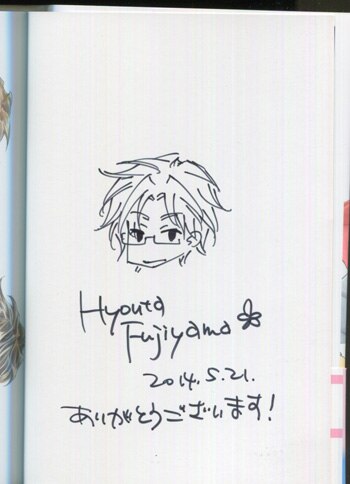 Hyouta
Fujiyama
2014.5.21.
ありがとうございます!